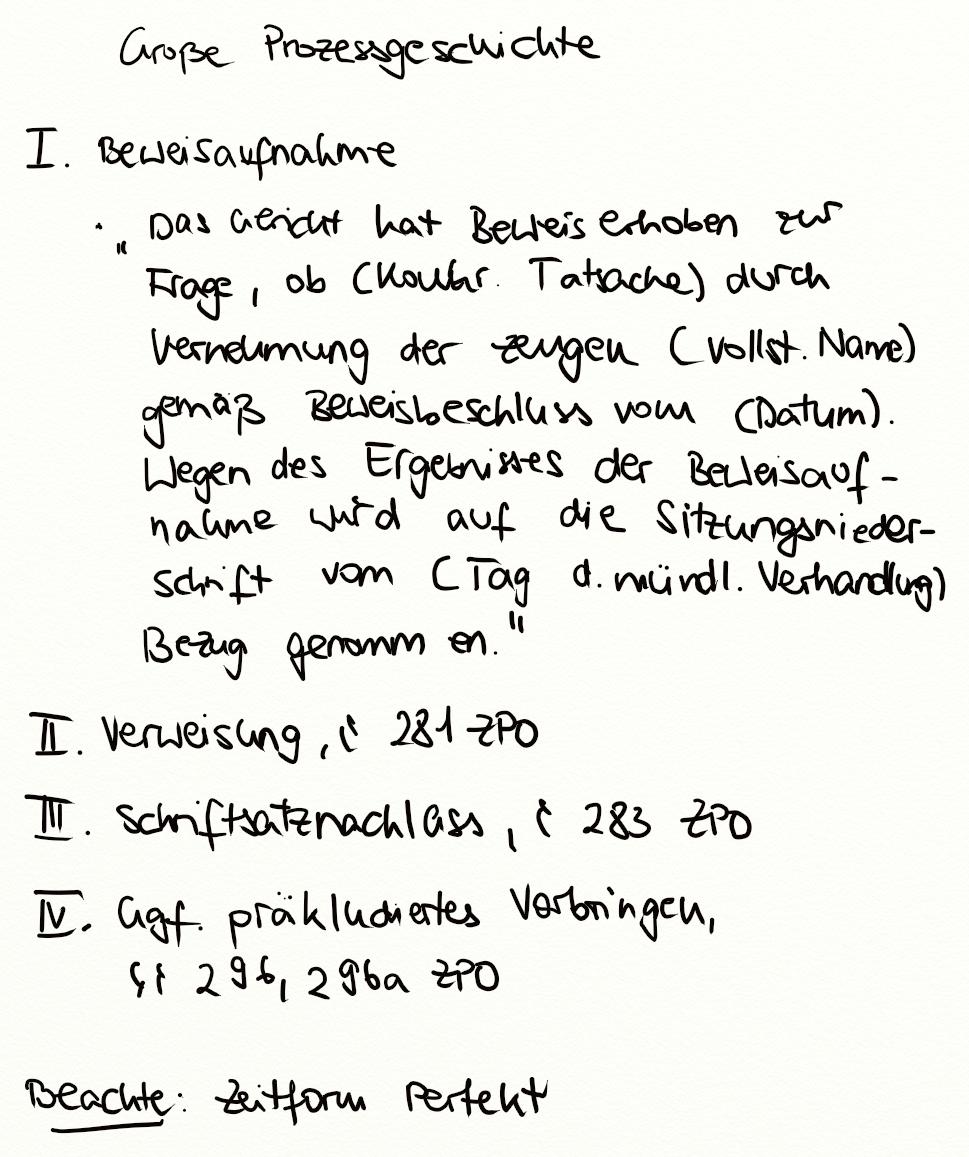 Große Prozessgeschichte
I. Beweisaufnahme
• „Das Gericht hat Beweis erhoben zur
Frage, ob (Konkr. Tatsache) durch
Vernehmung der Zeugen (vollst. Name)
gemäß Beweisbeschluss vom (Datum).
Wegen des Ergebnisses der Beweisauf-
nahme wird auf die Sitzungsnieder-
schrift vom (Tag d. mündl. Verhandlung)
Bezug genommen."
II. Verweisung, § 281 ZPO
III. Schriftsatznachlass, § 283 ZPO
IV. Ggf. präkludiertes Vorbringen,
§§ 296, 296a ZPO
Beachte: Zeitform Perfekt